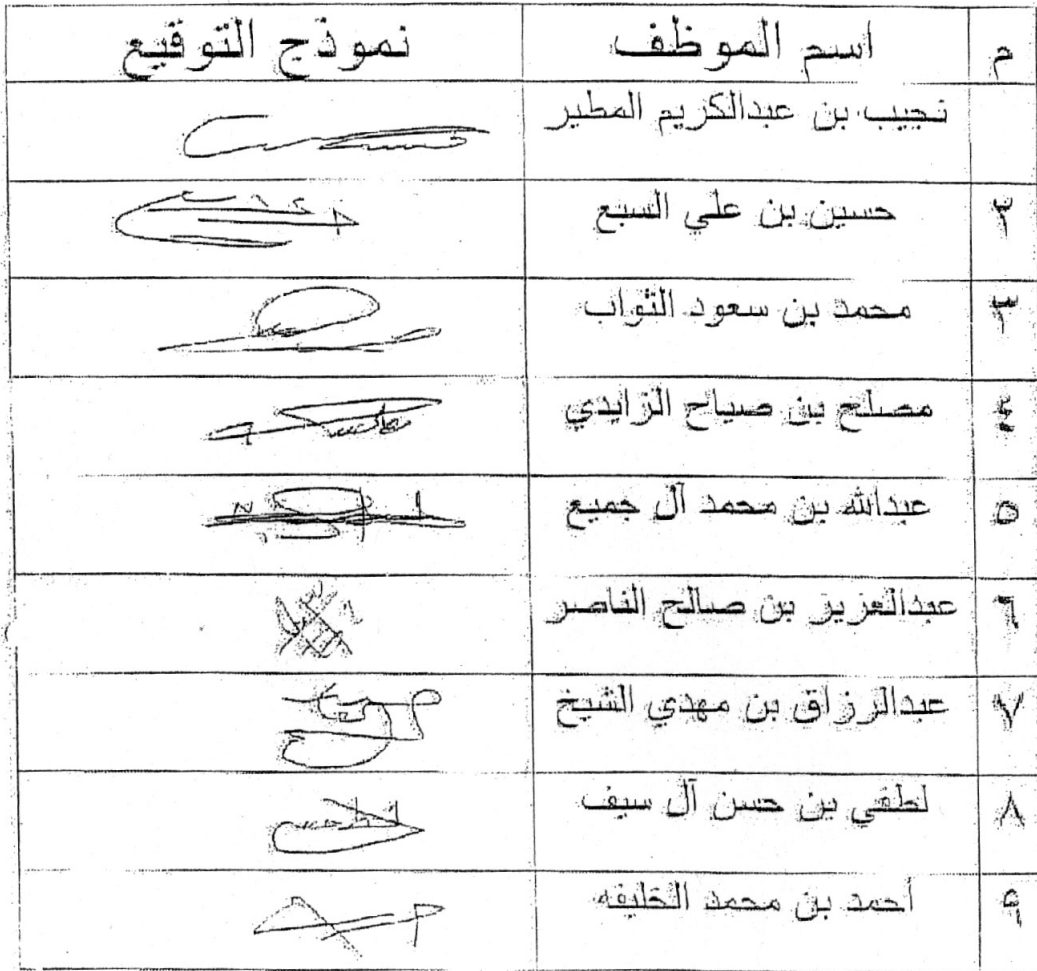 م اسم الموظف نموذج التوقيع
نجيب بن عبدالكريم المطير
٢ حسين بن علي السبع
٣ محمد بن سعود الثواب
٤ مصلح بن صياح الزايدي
٥ عبدالله بن محمد آل جميع
٦ عبدالعزيز بن صالح الناصر
٧ عبدالرزاق بن مهدي الشيخ
٨ لطفي بن حسن آل سيف
٩ أحمد بن محمد الخليفه